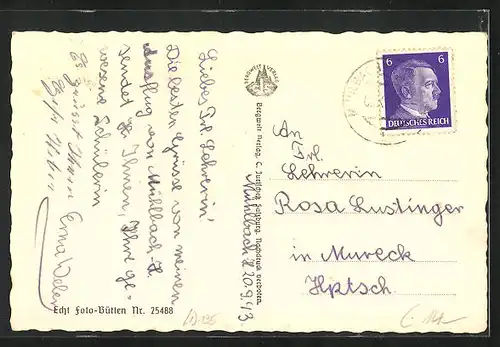 Liebes Frl. Lehrerin!
Die besten Grüsse von meinem
Ausflug von Mühlbach-H.
sendet Ihnen, Ihre ge=
wesene Schülerin
Erna Weber
Es grüsst Ihnen
BERGWELT VERLAG
Bergwelt Verlag, C. Jurischek, Salzburg. Nachdruck verboten.
Mühlbach 20.9.43
Echt Foto-Bütten Nr. 25488
6 6
DEUTSCHES REICH
An
Frl.
Lehrerin
Rosa Lustinger
in Mureck
Hptsch.